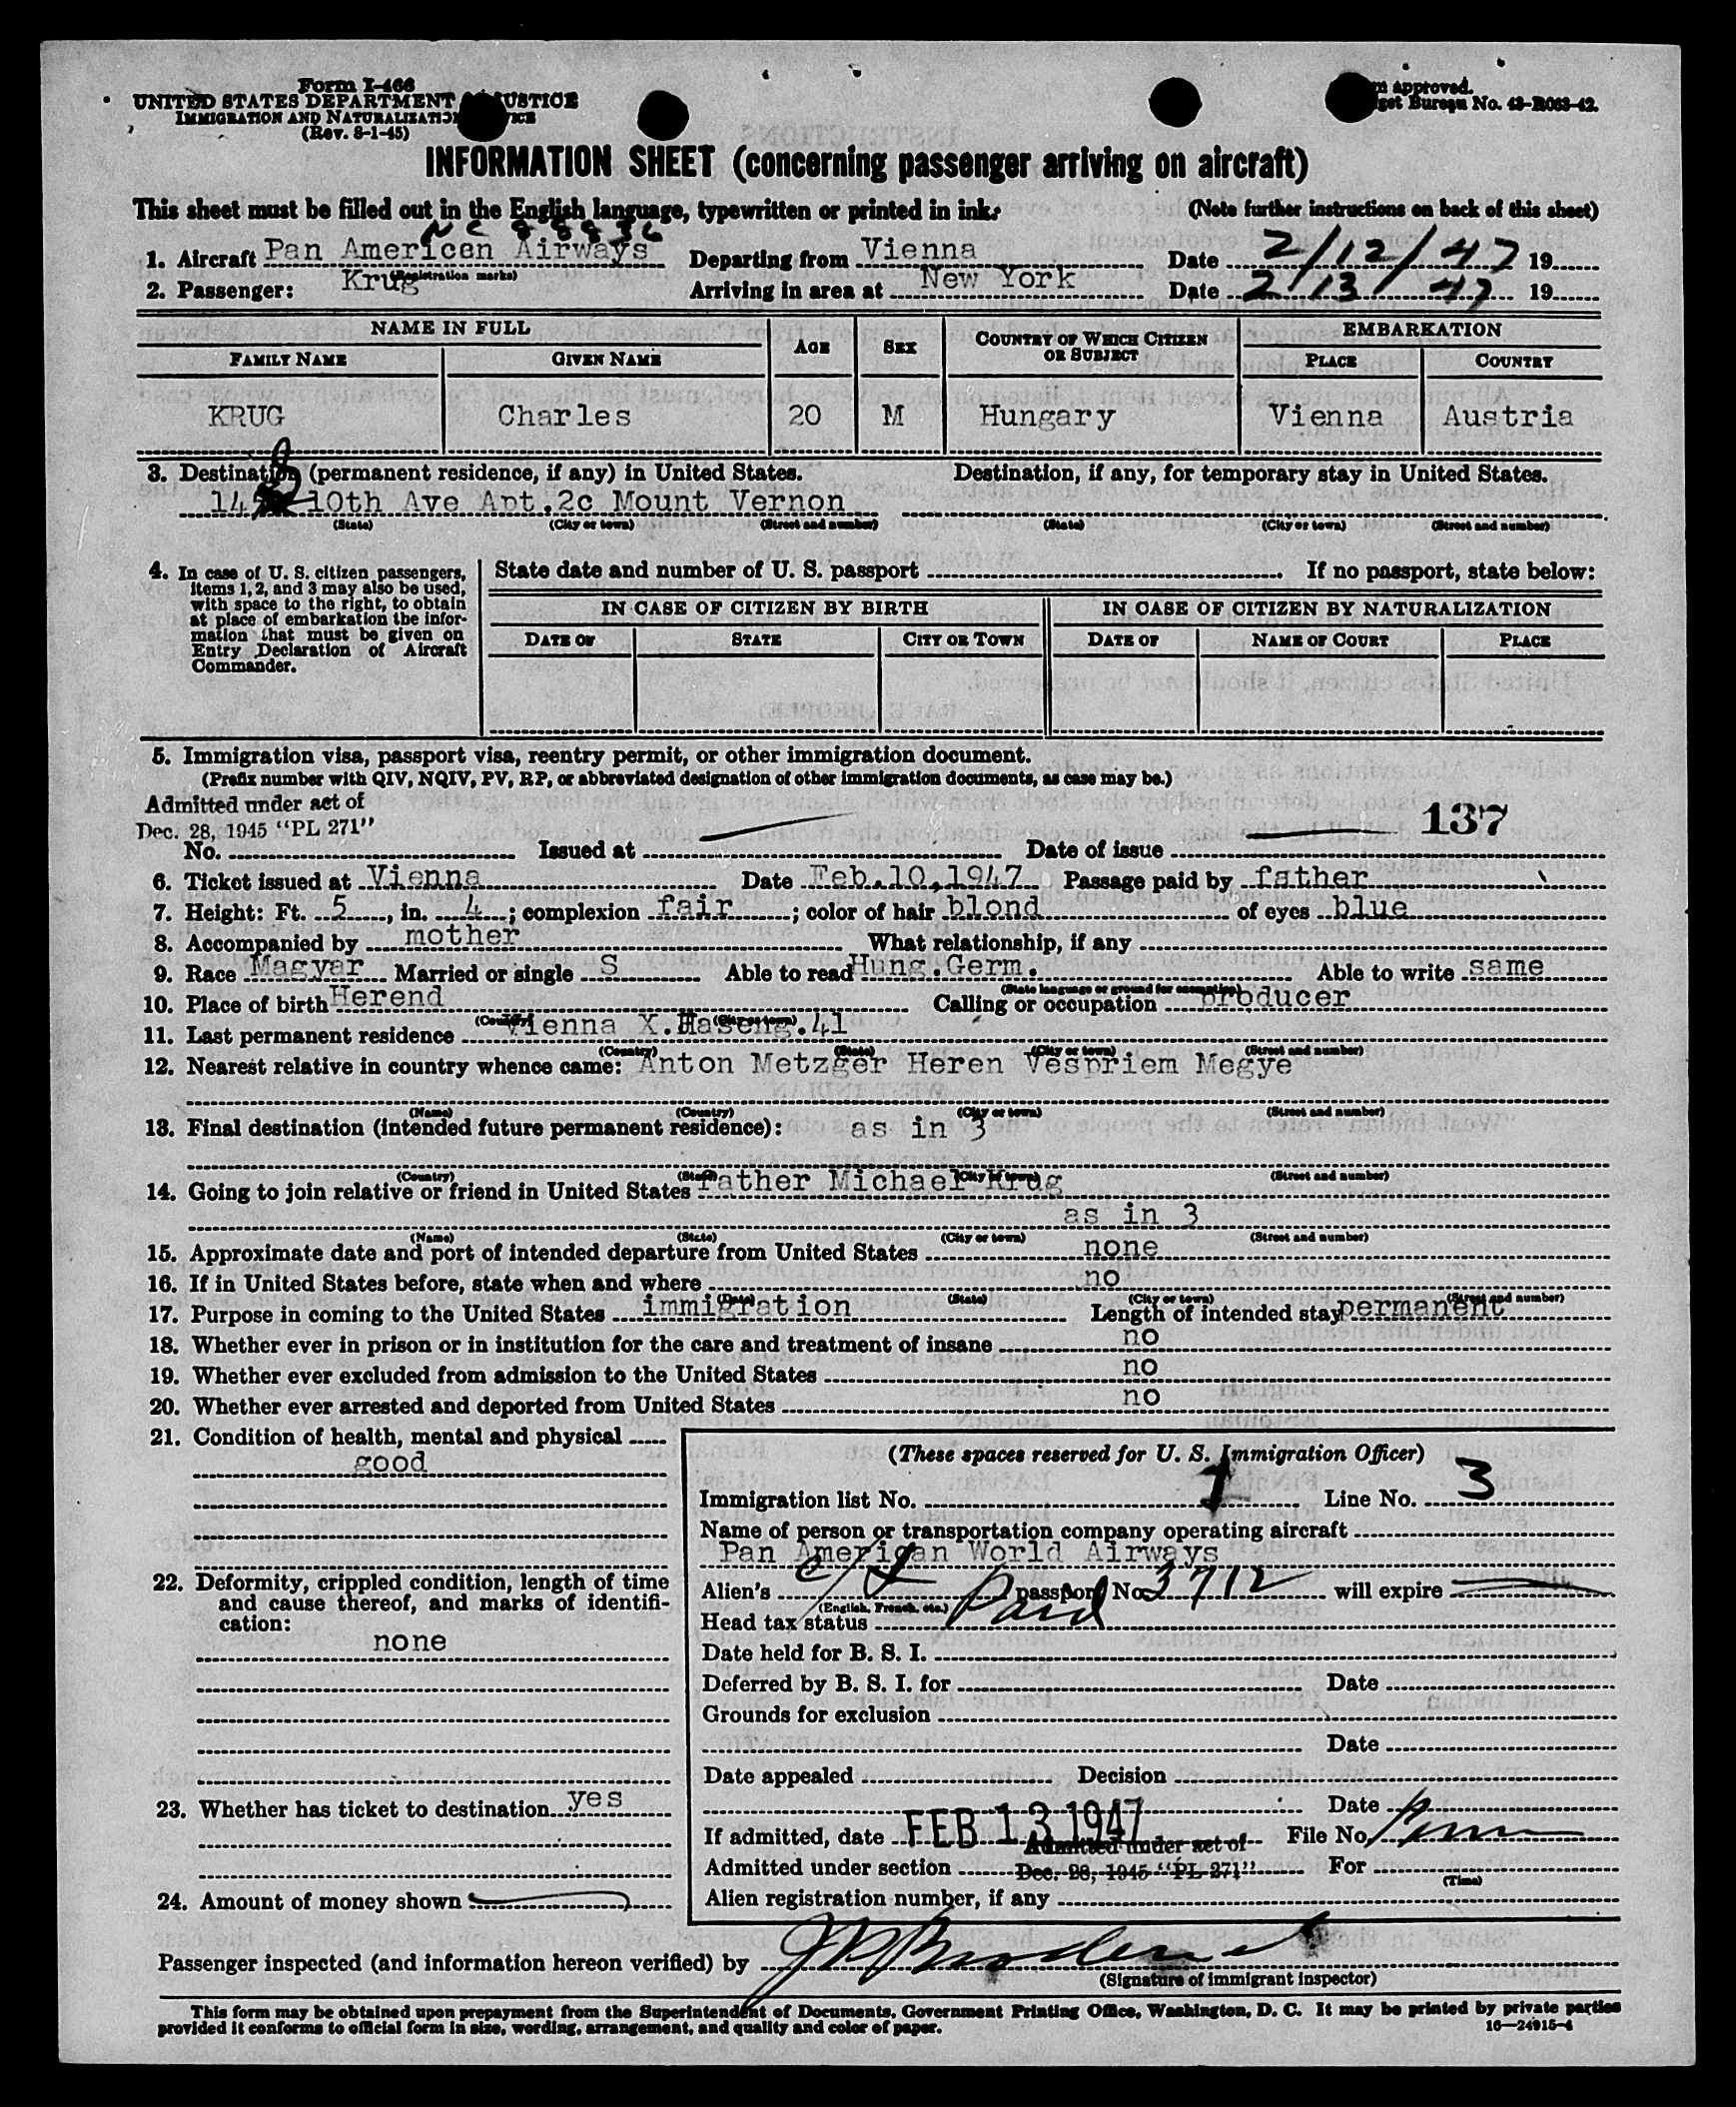 Form I-466
UNITED STATES DEPARTMENT USTICE
IMMIGRATION AND NATURALIZATIO VICE
(Rev. 8-1-45)
m approved.
get Bureau No. 43-R063-42.
INFORMATION SHEET (concerning passenger arriving on aircraft)
This sheet must be filled out in the English language, typewritten or printed in ink. (Note further instructions on back of this sheet)
NC 88836
1. Aircraft Pan American Airways Departing from Vienna Date 2/12/47 19
(Registration marks)
2. Passenger: Krug Arriving in area at New York Date 2/13/47 19
NAME IN FULL AGE SEX COUNTRY OF WHICH CITIZEN OR SUBJECT EMBARKATION
FAMILY NAME GIVEN NAME PLACE COUNTRY
KRUG Charles 20 M Hungary Vienna Austria
3. Destination (permanent residence, if any) in United States. Destination, if any, for temporary stay in United States.
14 10th Ave Apt.2c Mount Vernon
(State) (City or town) (Street and number) (State) (City or town) (Street and number)
4. In case of U. S. citizen passengers, items 1, 2, and 3 may also be used, with space to the right, to obtain at place of embarkation the information that must be given on Entry Declaration of Aircraft Commander.
State date and number of U. S. passport If no passport, state below:
IN CASE OF CITIZEN BY BIRTH IN CASE OF CITIZEN BY NATURALIZATION
DATE OF STATE CITY OR TOWN DATE OF NAME OF COURT PLACE
5. Immigration visa, passport visa, reentry permit, or other immigration document.
(Prefix number with QIV, NQIV, PV, RP, or abbreviated designation of other immigration documents, as case may be.)
Admitted under act of
Dec. 28, 1945 "PL 271"
137
No. Issued at Date of issue
6. Ticket issued at Vienna Date Feb.10,1947 Passage paid by father
7. Height: Ft. 5, in. 4; complexion fair; color of hair blond of eyes blue
8. Accompanied by mother What relationship, if any
9. Race Magyar Married or single S Able to read Hung.Germ. Able to write same
(State language or ground for exemption)
10. Place of birth Herend Calling or occupation producer
(Country) (City or town)
11. Last permanent residence Vienna X.Haseng.41
(Country) (State) (City or town) (Street and number)
12. Nearest relative in country whence came: Anton Metzger Heren Vespriem Megye
(Name) (Country) (City or town) (Street and number)
13. Final destination (intended future permanent residence): as in 3
(Country) (State) (City or town) (Street and number)
14. Going to join relative or friend in United States father Michael Krug
as in 3
(Name) (State) (City or town) (Street and number)
15. Approximate date and port of intended departure from United States none
16. If in United States before, state when and where no
(Date) (State) (City or town) (Street and number)
17. Purpose in coming to the United States immigration Length of intended stay permanent
18. Whether ever in prison or in institution for the care and treatment of insane no
19. Whether ever excluded from admission to the United States no
20. Whether ever arrested and deported from United States no
21. Condition of health, mental and physical
good
22. Deformity, crippled condition, length of time and cause thereof, and marks of identification:
none
23. Whether has ticket to destination yes
24. Amount of money shown
(These spaces reserved for U. S. Immigration Officer)
Immigration list No. 1 Line No. 3
Name of person or transportation company operating aircraft
Pan American World Airways
Alien's passport No. 3712 will expire
(English, French, etc.)
Head tax status Paid
Date held for B. S. I.
Deferred by B. S. I. for Date
Grounds for exclusion
Date
Date appealed Decision
Date
If admitted, date FEB 13 1947 File No.
Admitted under act of
Admitted under section Dec. 28, 1945 "PL 271" For
(Time)
Alien registration number, if any
Passenger inspected (and information hereon verified) by
(Signature of immigrant inspector)
This form may be obtained upon prepayment from the Superintendent of Documents, Government Printing Office, Washington, D. C. It may be printed by private parties
provided it conforms to official form in size, wording, arrangement, and quality and color of paper.
16—24915-4